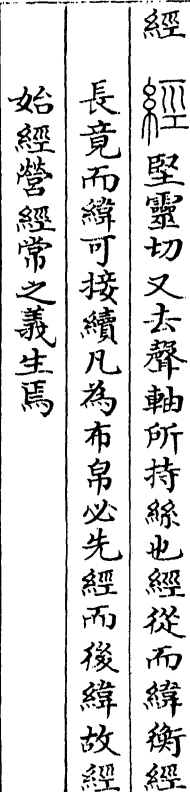 經 經 堅靈切又去聲軸所持絲也經從而緯衡經
長竟而緯可接續凡為布帛必先經而後緯故經
始經營經常之義生焉